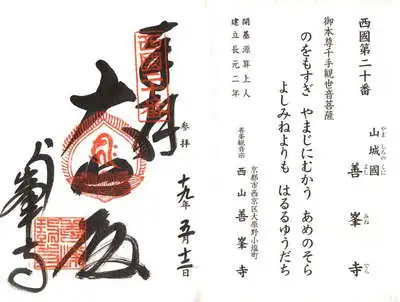 西國第二十番
山城國 善峯寺
やましろのくに よしみねでら
御本尊千手観世音菩薩
のをもすぎ やまじにむかう あめのそら
よしみねよりも はるるゆうだち
開基源算上人
建立長元二年
善峯観音宗 西山善峯寺
京都市西京区大原野小塩町
奉拝
参拝
大悲殿
十九年 五月十二日
善峯寺